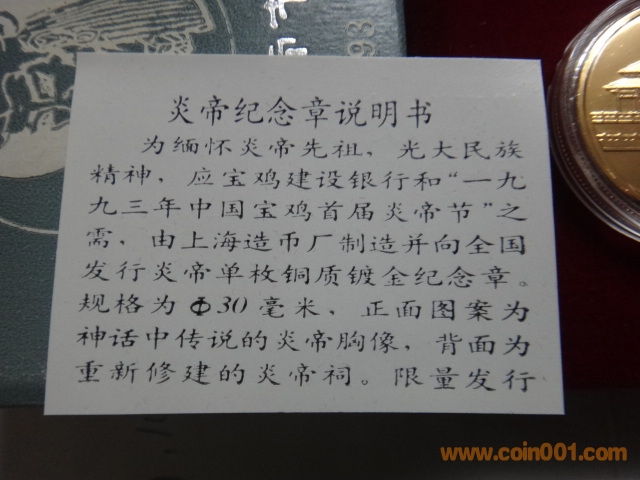 炎帝纪念章说明书
为缅怀炎帝先祖，光大民族
精神，应宝鸡建设银行和“一九
九三年中国宝鸡首届炎帝节”之
需，由上海造币厂制造并向全国
发行炎帝单枚铜质镀金纪念章。
规格为Φ30毫米，正面图案为
神话中传说的炎帝胸像，背面为
重新修建的炎帝祠。限量发行
www.coin001.com